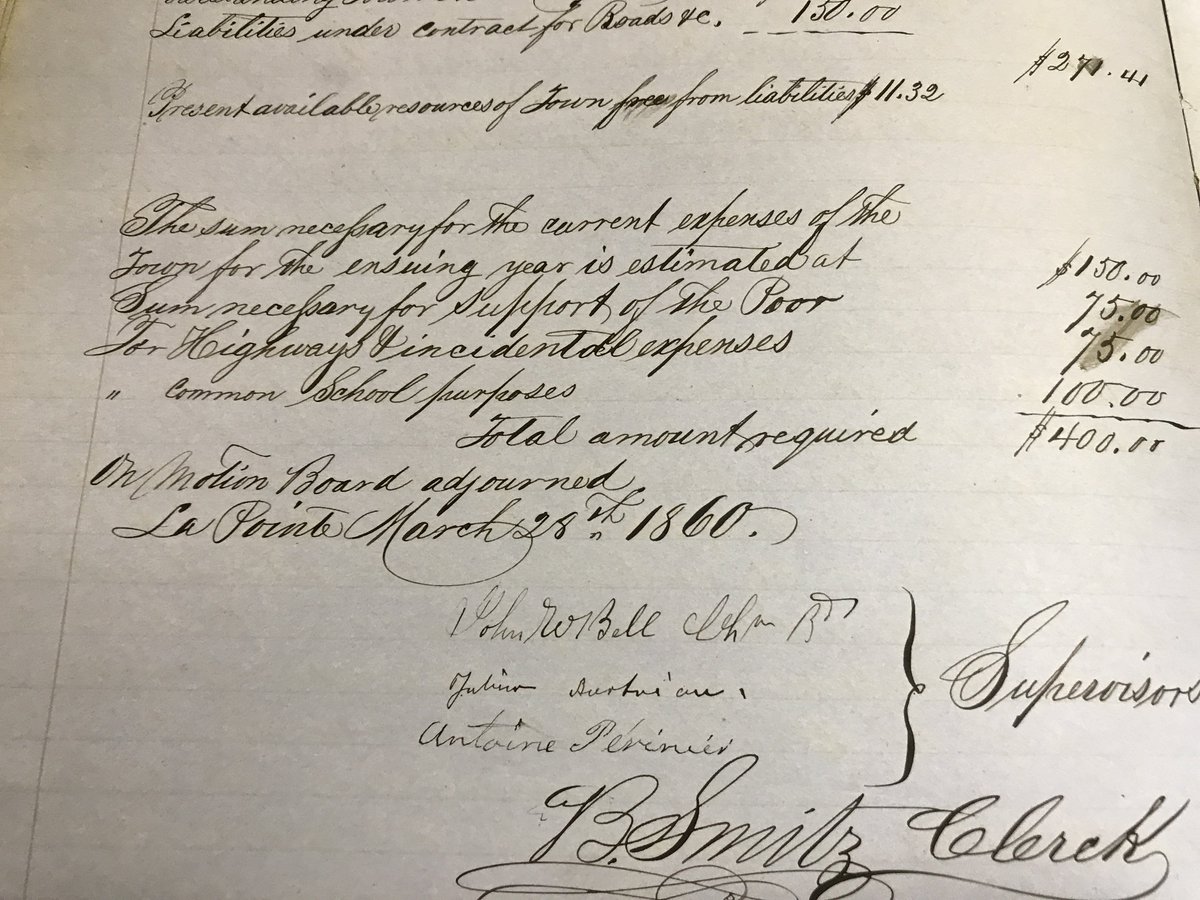 Liabilities under contract for Roads &c. 150.00
$271.41
Present available resources of Town free from liabilities $11.32
The sum necessary for the current expenses of the
Town for the ensuing year is estimated at $150.00
Sum necessary for support of the Poor 75.00
For Highways & incidental expenses 75.00
" common School purposes 100.00
Total amount required $400.00
On Motion Board adjourned
La Pointe March 28th 1860.
John W Bell Chn Bd
Julius Austrian.
Antoine Périnier
Supervisors
B. Smitz Clerck